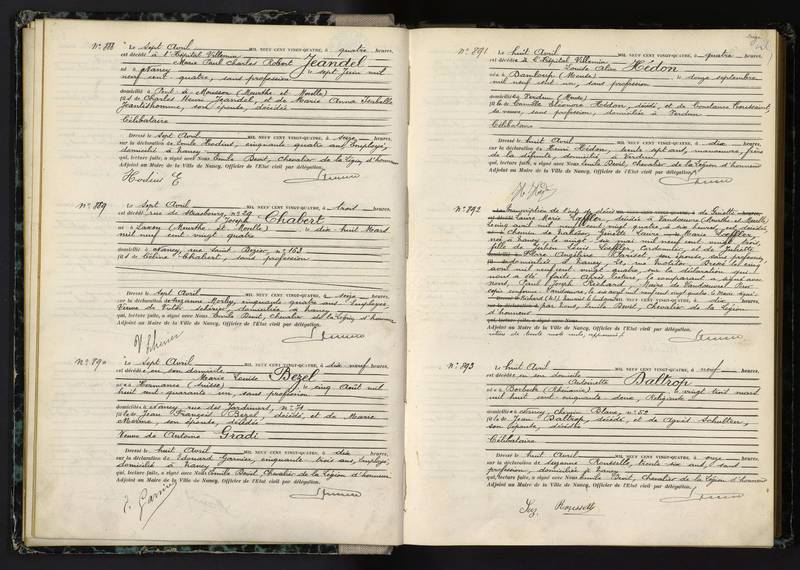 N° 888
Le sept Avril MIL NEUF CENT VINGT-QUATRE, à quatre heures,
est décédé à l'Hôpital Villemin
Marie Paul Charles Robert Jeandel
né à Nancy le sept Juin mil
neuf cent quatre, sans profession
domicilié à Pont à Mousson (Meurthe et Moselle)
fils de Charles Henri Jeandel, et de Marie Anna Isabelle
son épouse, décédée
Célibataire
Dressé le sept Avril MIL NEUF CENT VINGT-QUATRE, à seize heures,
sur la déclaration de Emile Hodius, cinquante quatre ans, Employé,
domicilié à nancy
qui, lecture faite, a signé avec Nous Emile Benit, Chevalier de la Légion d'honneur
Adjoint au Maire de la Ville de Nancy, Officier de l'Etat civil par délégation.
Hodius E
N° 889
Le sept Avril MIL NEUF CENT VINGT-QUATRE, à trois heures,
est décédé rue de Strasbourg n° 29
Joseph Chabert
né à Laxou (Meurthe et Moselle) le dix huit Mars
mil neuf cent vingt quatre
domicilié à Nancy, rue Saint Dizier, n° 163
fils de Céline Chabert, sans profession
Dressé le sept Avril MIL NEUF CENT VINGT-QUATRE, à seize heures,
sur la déclaration de Suzanne cinquante quatre ans, Employée
Veuve de domiciliée à nancy
qui, lecture faite, a signé avec Nous Emile Benit, Chevalier de la Légion d'honneur
Adjoint au Maire de la Ville de Nancy, Officier de l'Etat civil par délégation.
N° 890
Le sept Avril MIL NEUF CENT VINGT-QUATRE, à dix neuf heures,
est décédée en son domicile
Marie Louise Bezel
née à (Suisse) le cinq Août mil
huit cent quarante un, sans profession
domiciliée à Nancy rue des Jardiniers, n° 71
fille de Jean François Bezel, décédé, et de Marie
son épouse, décédée
Veuve de Antoine Gradi
Dressé le huit Avril MIL NEUF CENT VINGT-QUATRE, à dix heures,
sur la déclaration de Edouard Garnier, cinquante trois ans, Employé,
domicilié à nancy
qui, lecture faite, a signé avec Nous Emile Benit, Chevalier de la Légion d'honneur
Adjoint au Maire de la Ville de Nancy, Officier de l'Etat civil par délégation.
E. Garnier
N° 891
Le huit Avril MIL NEUF CENT VINGT-QUATRE, à quatre heures,
est décédé à l'Hôpital Villemin
Hédon
né à (Meuse) le douze septembre
mil neuf cent un, sans profession
domicilié à Verdun (Meuse)
fils de Camille Eléonore Hédon, décédé, et de Constance Toussaint,
sa veuve, sans profession, domiciliée à Verdun
Célibataire
Dressé le huit Avril MIL NEUF CENT VINGT-QUATRE, à dix heures,
sur la déclaration de Henri Hédon, trente sept ans, manoeuvre, frère
domicilié à Verdun
qui, lecture faite, a signé avec Nous Emile Benit, Chevalier de la Légion d'honneur
Adjoint au Maire de la Ville de Nancy, Officier de l'Etat civil par délégation.
N° 892
Transcription de l'acte de décès de Ginette
Laure Marie Loeffler décédée à Vandoeuvre (Meurthe et Moselle)
Le cinq avril mil neuf cent vingt quatre, à six heures, est décédée,
Ginette Laure Marie Loeffler
née à nancy, le vingt six mai mil neuf cent vingt trois,
fille de Louis Loeffler, Cordonnier, et de Juliette
Flore Angéline Parisot, son épouse, sans profession,
domiciliés à nancy
avril mil neuf cent vingt quatre, sur la déclaration qui
nous a été faite. Après lecture, le comparant a signé avec
nous, Paul Joseph Richard, Maire de Vandoeuvre. Pour
copie conforme: Vandoeuvre, le
à dix heures,
par nous, Emile Benit, Chevalier de la Légion
d'honneur
Adjoint au Maire de la Ville de Nancy, Officier de l'Etat civil par délégation.
N° 893
Le huit Avril MIL NEUF CENT VINGT-QUATRE, à neuf heures,
est décédée en son domicile
Antoinette Baltrop
née à Borbeck (Rhénanie) le vingt trois mars
mil huit cent cinquante deux, Religieuse
domiciliée à Nancy, Chemin Blanc, n° 52
fille de Jean Baltrop, décédé, et de Agnès Schulten,
son épouse, décédée
Célibataire
Dressé le huit Avril MIL NEUF CENT VINGT-QUATRE, à onze heures,
sur la déclaration de Suzanne Rousselle, trente six ans, sans
profession, domiciliée à nancy
qui, lecture faite, a signé avec Nous Emile Benit, Chevalier de la Légion d'honneur
Adjoint au Maire de la Ville de Nancy, Officier de l'Etat civil par délégation.